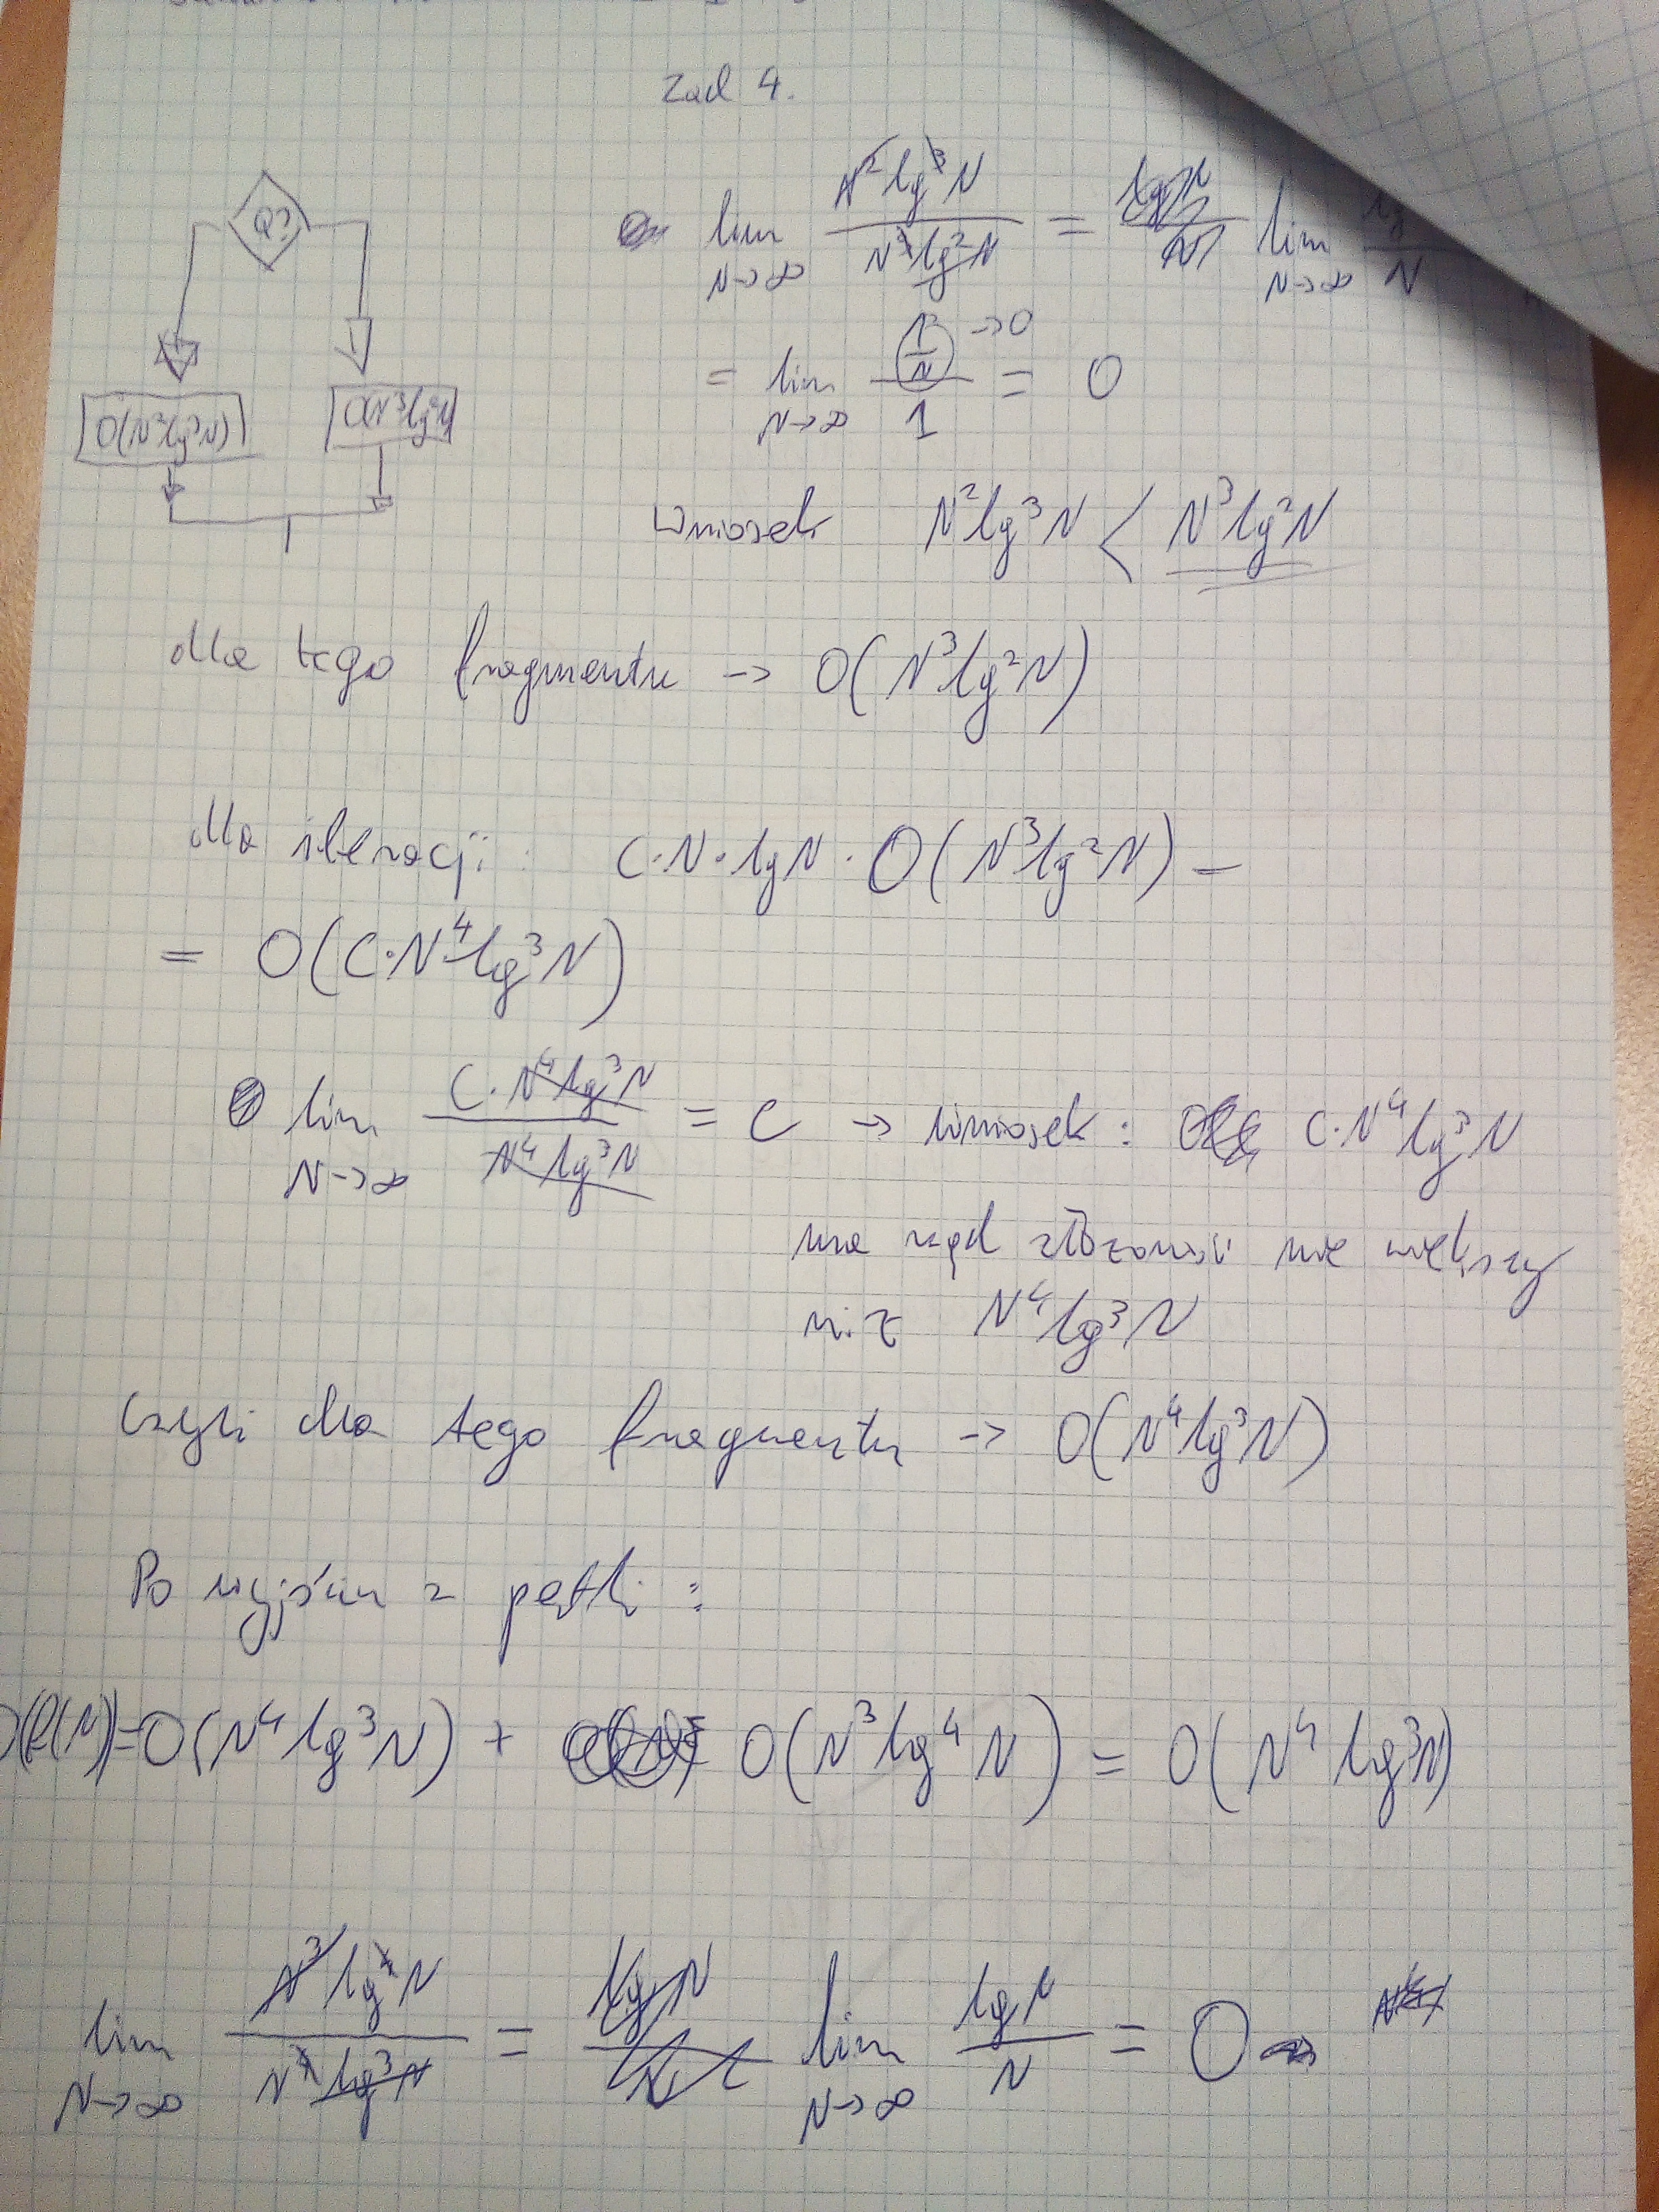 Zad 4.
Q?
O(N²lg³N)
O(N³lg²N)
lim N→∞ N²lg³N / N³lg²N = lim N→∞ lg / N
= lim N→∞ (1/N) →0 / 1 = 0
Wniosek N²lg³N < N³lg²N
dla tego fragmentu → O(N³lg²N)
dla iteracji: C·N·lgN·O(N³lg²N) =
= O(C·N⁴lg³N)
lim N→∞ C·N⁴lg³N / N⁴lg³N = C → wniosek: C·N⁴lg³N
ma rząd złożoności nie większy
niż N⁴lg³N
Czyli dla tego fragmentu → O(N⁴lg³N)
Po wyjściu z pętli:
O(N⁴lg³N) + O(N³lg⁴N) = O(N⁴lg³N)
lim N→∞ N³lg⁴N / N⁴lg³N = lim N→∞ lgN / N = 0